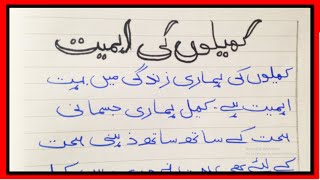 کھیلوں کی اہمیت
کھیلوں کی ہماری زندگی میں بہت
اہمیت ہے۔ کھیل ہماری جسمانی
صحت کے ساتھ ساتھ ذہنی صحت
کے لئے بھی